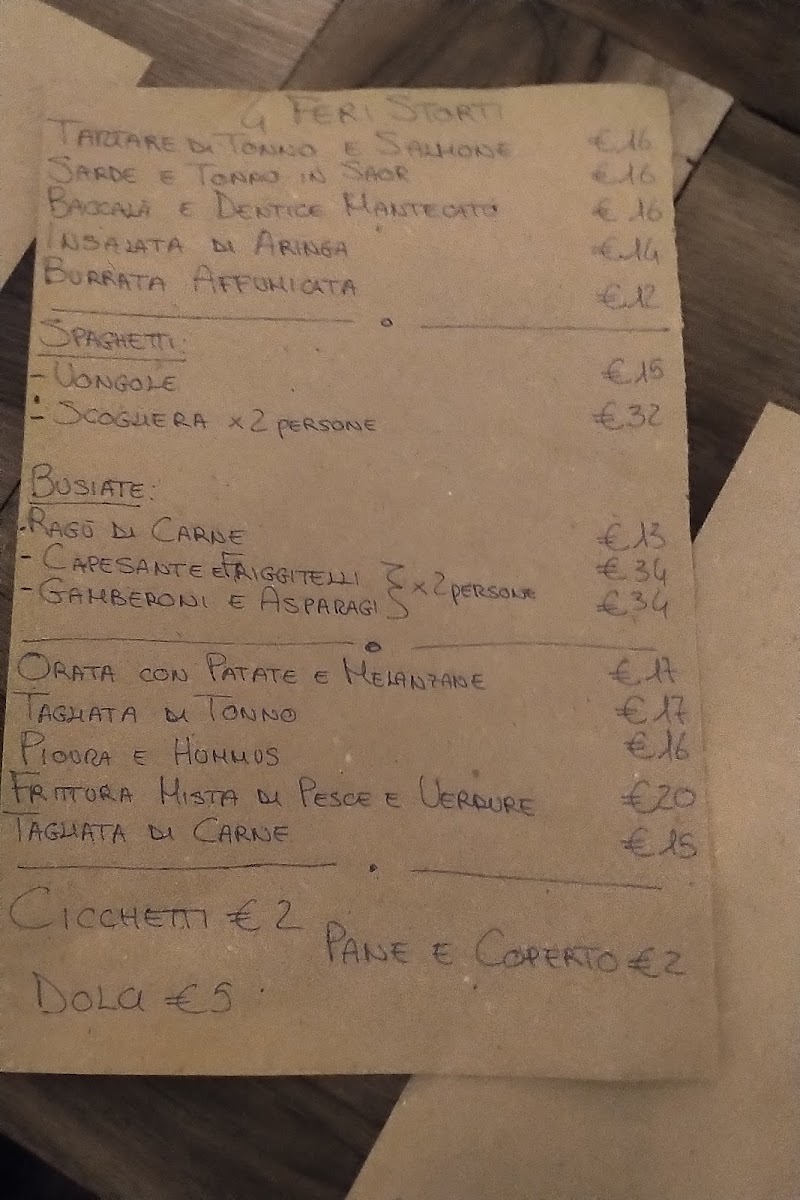 4 FERI STORTI
TARTARE DI TONNO E SALMONE €16
SARDE E TONNO IN SAOR €16
BACCALÀ E DENTICE MANTECATO € 16
INSALATA DI ARINGA €14
BURRATA AFFUMICATA €12
SPAGHETTI:
- VONGOLE €15
- SCOGLIERA x 2 PERSONE €32
BUSIATE:
- RAGÙ DI CARNE €13
- CAPESANTE E FRIGGITELLI €34
x 2 PERSONE
- GAMBERONI E ASPARAGI €34
ORATA CON PATATE E MELANZANE €17
TAGLIATA DI TONNO €17
PIOVRA E HUMMUS €16
FRITTURA MISTA DI PESCE E VERDURE €20
TAGLIATA DI CARNE €15
CICCHETTI € 2
PANE E COPERTO €2
DOLCI €5